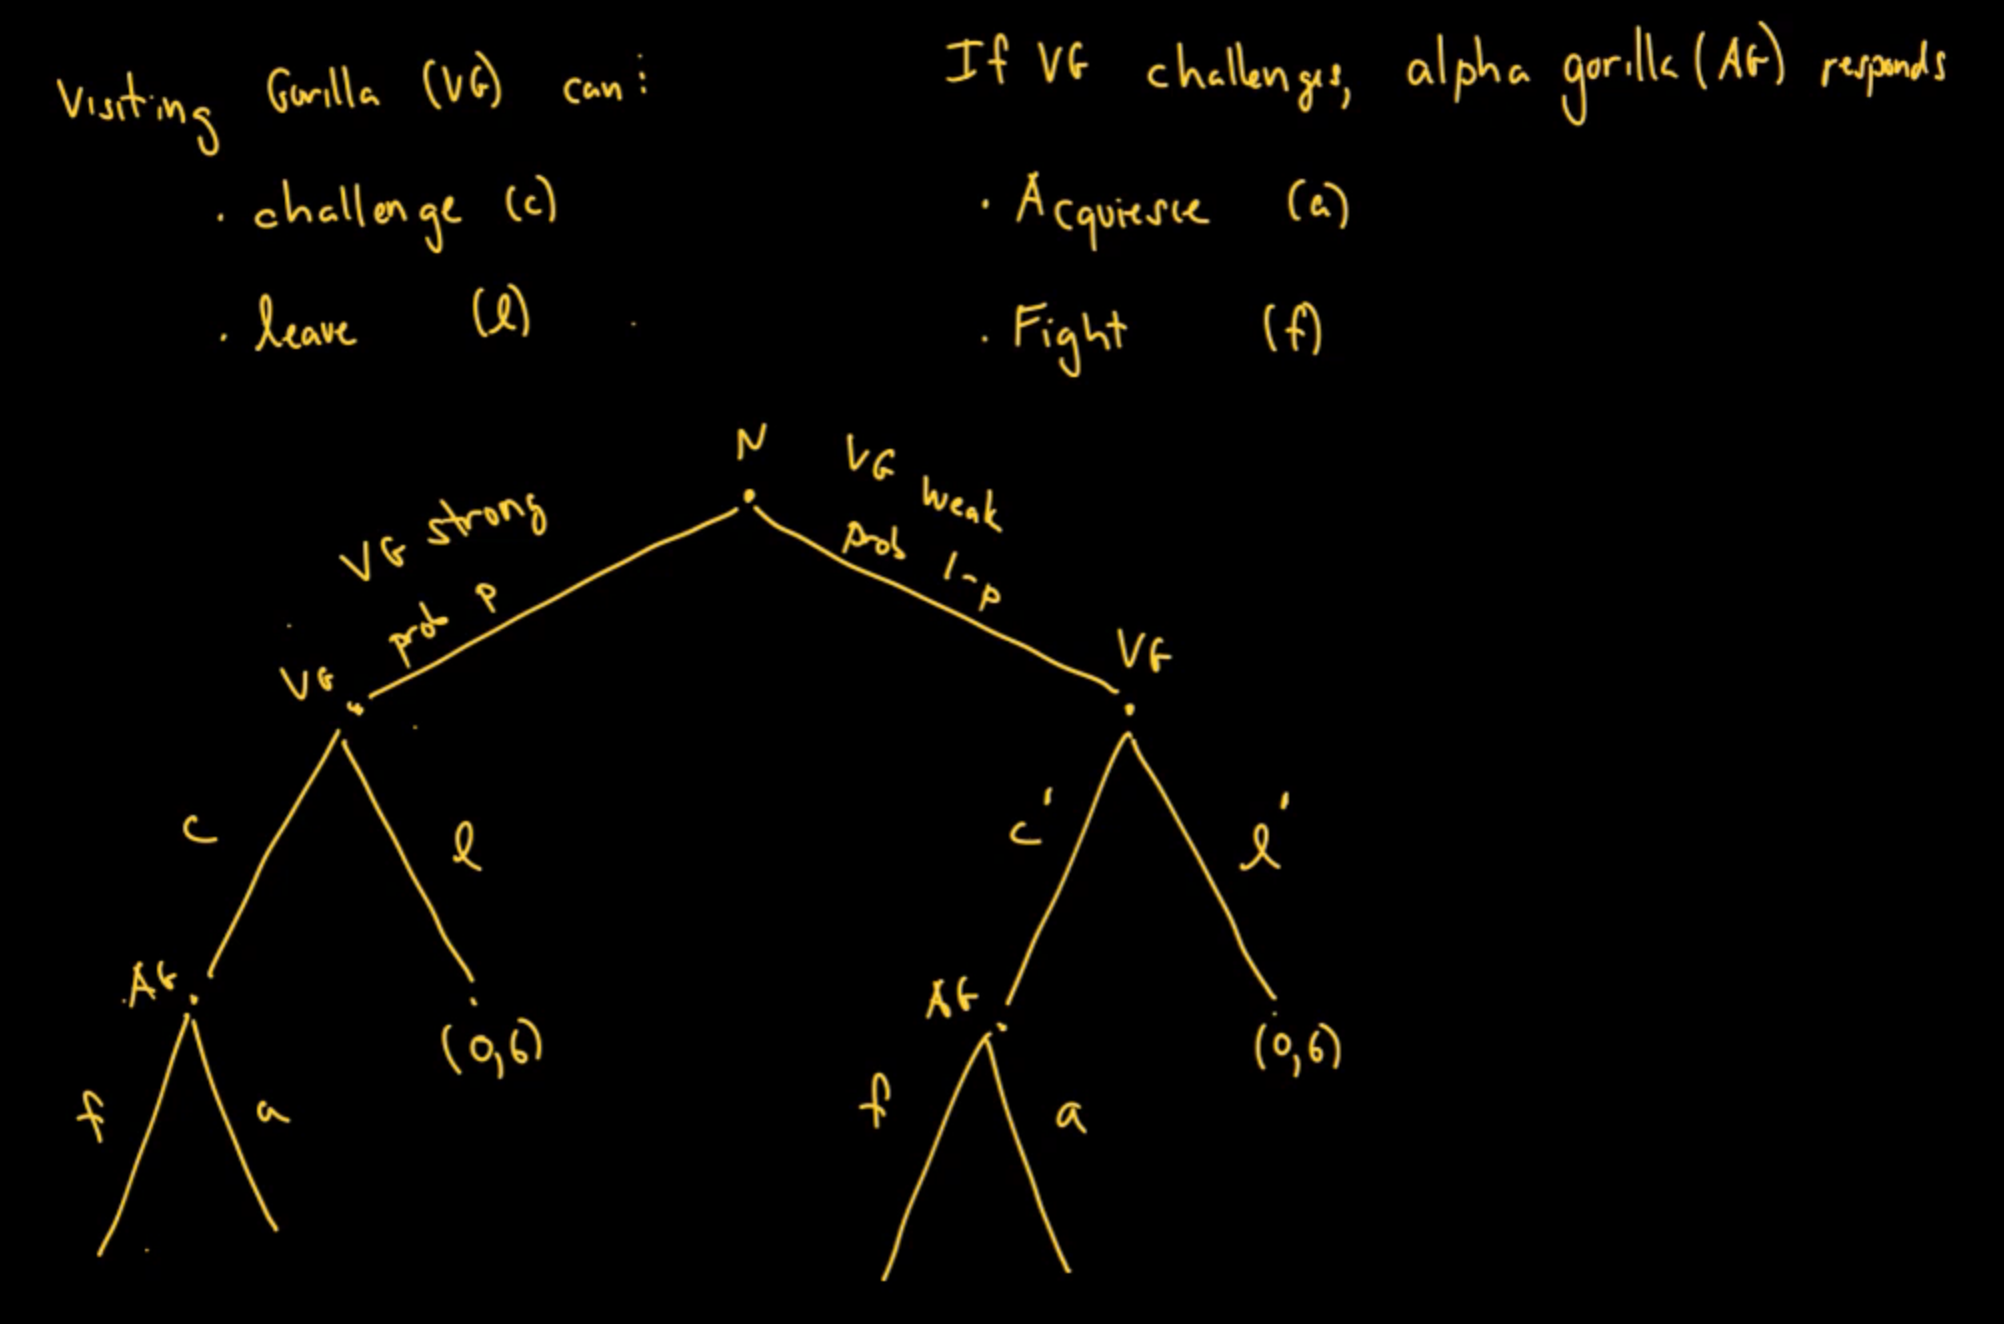 Visiting Gorilla (VG) can:
· challenge (c)
· leave (l)
If VG challenges, alpha gorilla (AG) responds
· Acquiesce (a)
· Fight (f)
N
VG strong
prob p
VG weak
prob 1-p
VG
VG
c
l
c'
l'
AG
(0,6)
AG
(0,6)
f
a
f
a